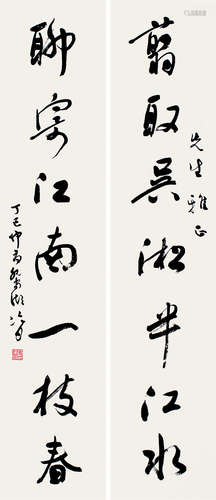 翦取吳淞半江水
先生雅正
聊寄江南一枝春
丁巳仲夏 冷月